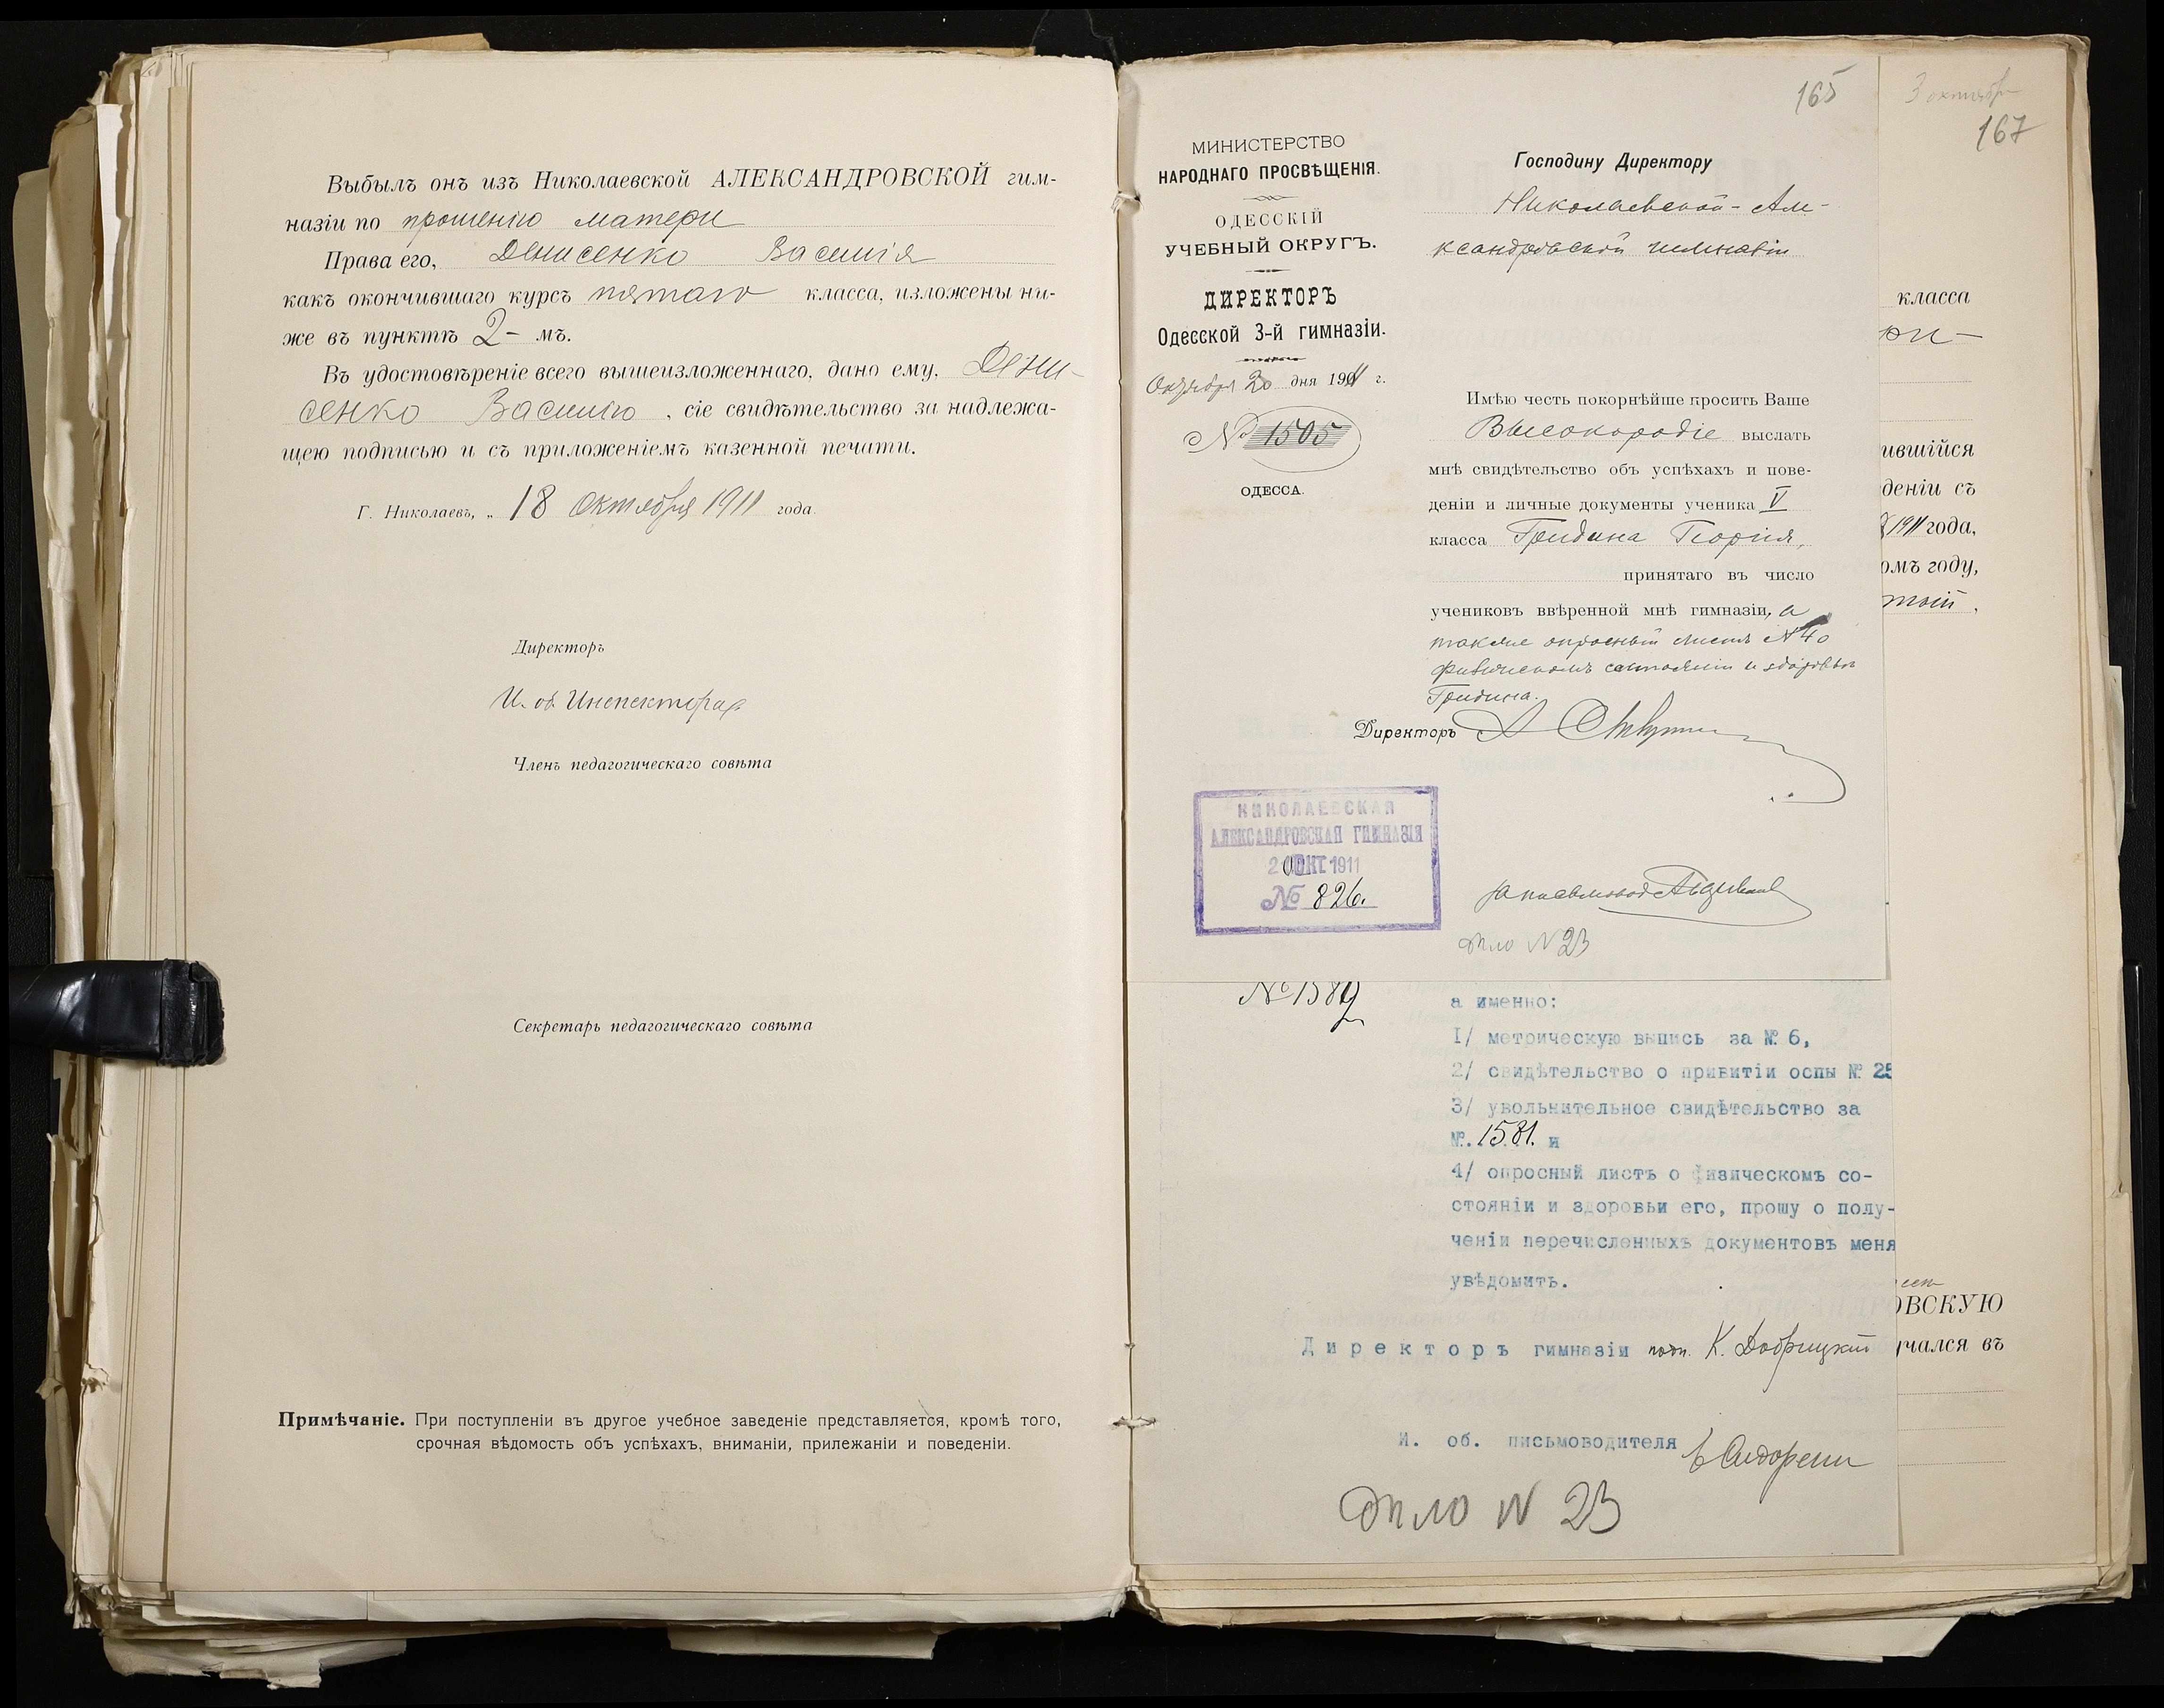 Выбылъ онъ изъ Николаевской АЛЕКСАНДРОВСКОЙ гим-
назіи по прошенію матери
Права его, Денисенко Василія
какъ окончившаго курсъ пятаго класса, изложены ни-
же въ пунктѣ 2-мъ.
Въ удостовѣреніе всего вышеизложеннаго, дано ему, Дени-
сенко Василію, сіе свидѣтельство за надлежа-
щею подписью и съ приложеніемъ казенной печати.
Г. Николаевъ, „ 18 Октября 1911 года.
Директоръ
И. об. Инспектора
Членъ педагогическаго совѣта
Секретарь педагогическаго совѣта
Примѣчаніе. При поступленіи въ другое учебное заведеніе представляется, кромѣ того,
срочная вѣдомость объ успѣхахъ, вниманіи, прилежаніи и поведеніи.
165
МИНИСТЕРСТВО
НАРОДНАГО ПРОСВѢЩЕНІЯ.
ОДЕССКІЙ
УЧЕБНЫЙ ОКРУГЪ.
ДИРЕКТОРЪ
Одесской 3-й гимназіи.
Октября 20 дня 1911 г.
№ 1505
ОДЕССА.
Господину Директору
Николаевской-Але-
ксандровской гимназіи
Имѣю честь покорнѣйше просить Ваше
Высокородіе выслать
мнѣ свидѣтельство объ успѣхахъ и пове-
деніи и личные документы ученика V
класса Гридина Георгія,
принятаго въ число
учениковъ ввѣренной мнѣ гимназіи, а
также опросный листъ о
физическомъ состояніи и здоровьи
Гридина.
Директоръ
НИКОЛАЕВСКАЯ
АЛЕКСАНДРОВСКАЯ ГИМНАЗІЯ
ОКТ 1911
№ 826.
За письмовод
Дѣло N 23
№ 1582
а именно:
1/ метрическую выпись за № 6,
2/ свидѣтельство о привитіи оспы № 25
3/ увольнительное свидѣтельство за
№ 1581. и
4/ опросный листъ о физическомъ со-
стояніи и здоровьи его, прошу о полу-
ченіи перечисленныхъ документовъ меня
увѣдомить.
Директоръ гимназіи подп. К. Добрицкій
И. об. письмоводителя
Дѣло N 23
3 октябр
167
класса
ри-
ившійся
деніи съ
1911 года,
омъ году,
тый.
ОВСКУЮ
учался въ